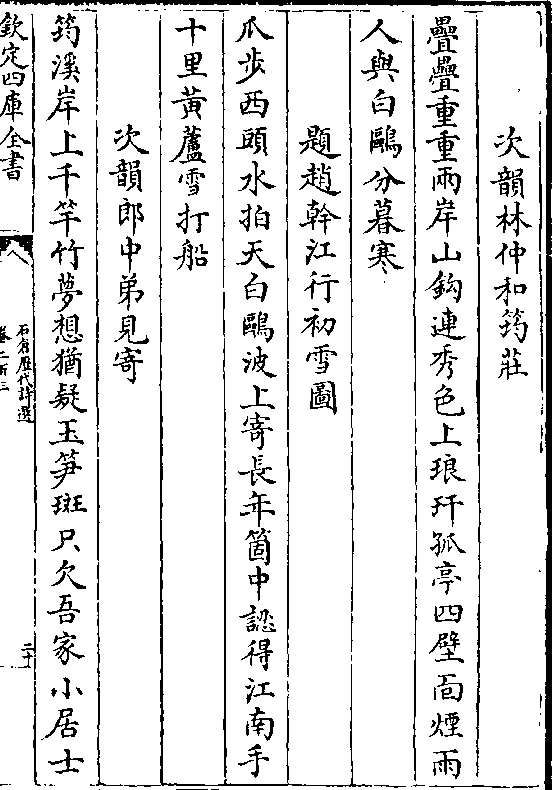 次韻林仲和筠莊
疊疊重重兩岸山鈎連秀色上琅玕孤亭四壁面煙雨
人與白鷗分暮寒
題趙幹江行初雪圖
瓜步西頭水拍天白鷗波上寄長年箇中認得江南手
十里黄蘆雪打船
次韻郎中弟見寄
筠溪岸上千竿竹夢想猶疑玉笋斑只欠吾家小居士
欽定四庫全書
石倉歷代詩選
卷二百三
二十